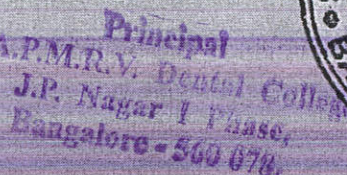 Principal
A.P.M.R.V. Dental College
J.P. Nagar I Phase,
Bangalore - 560 078.